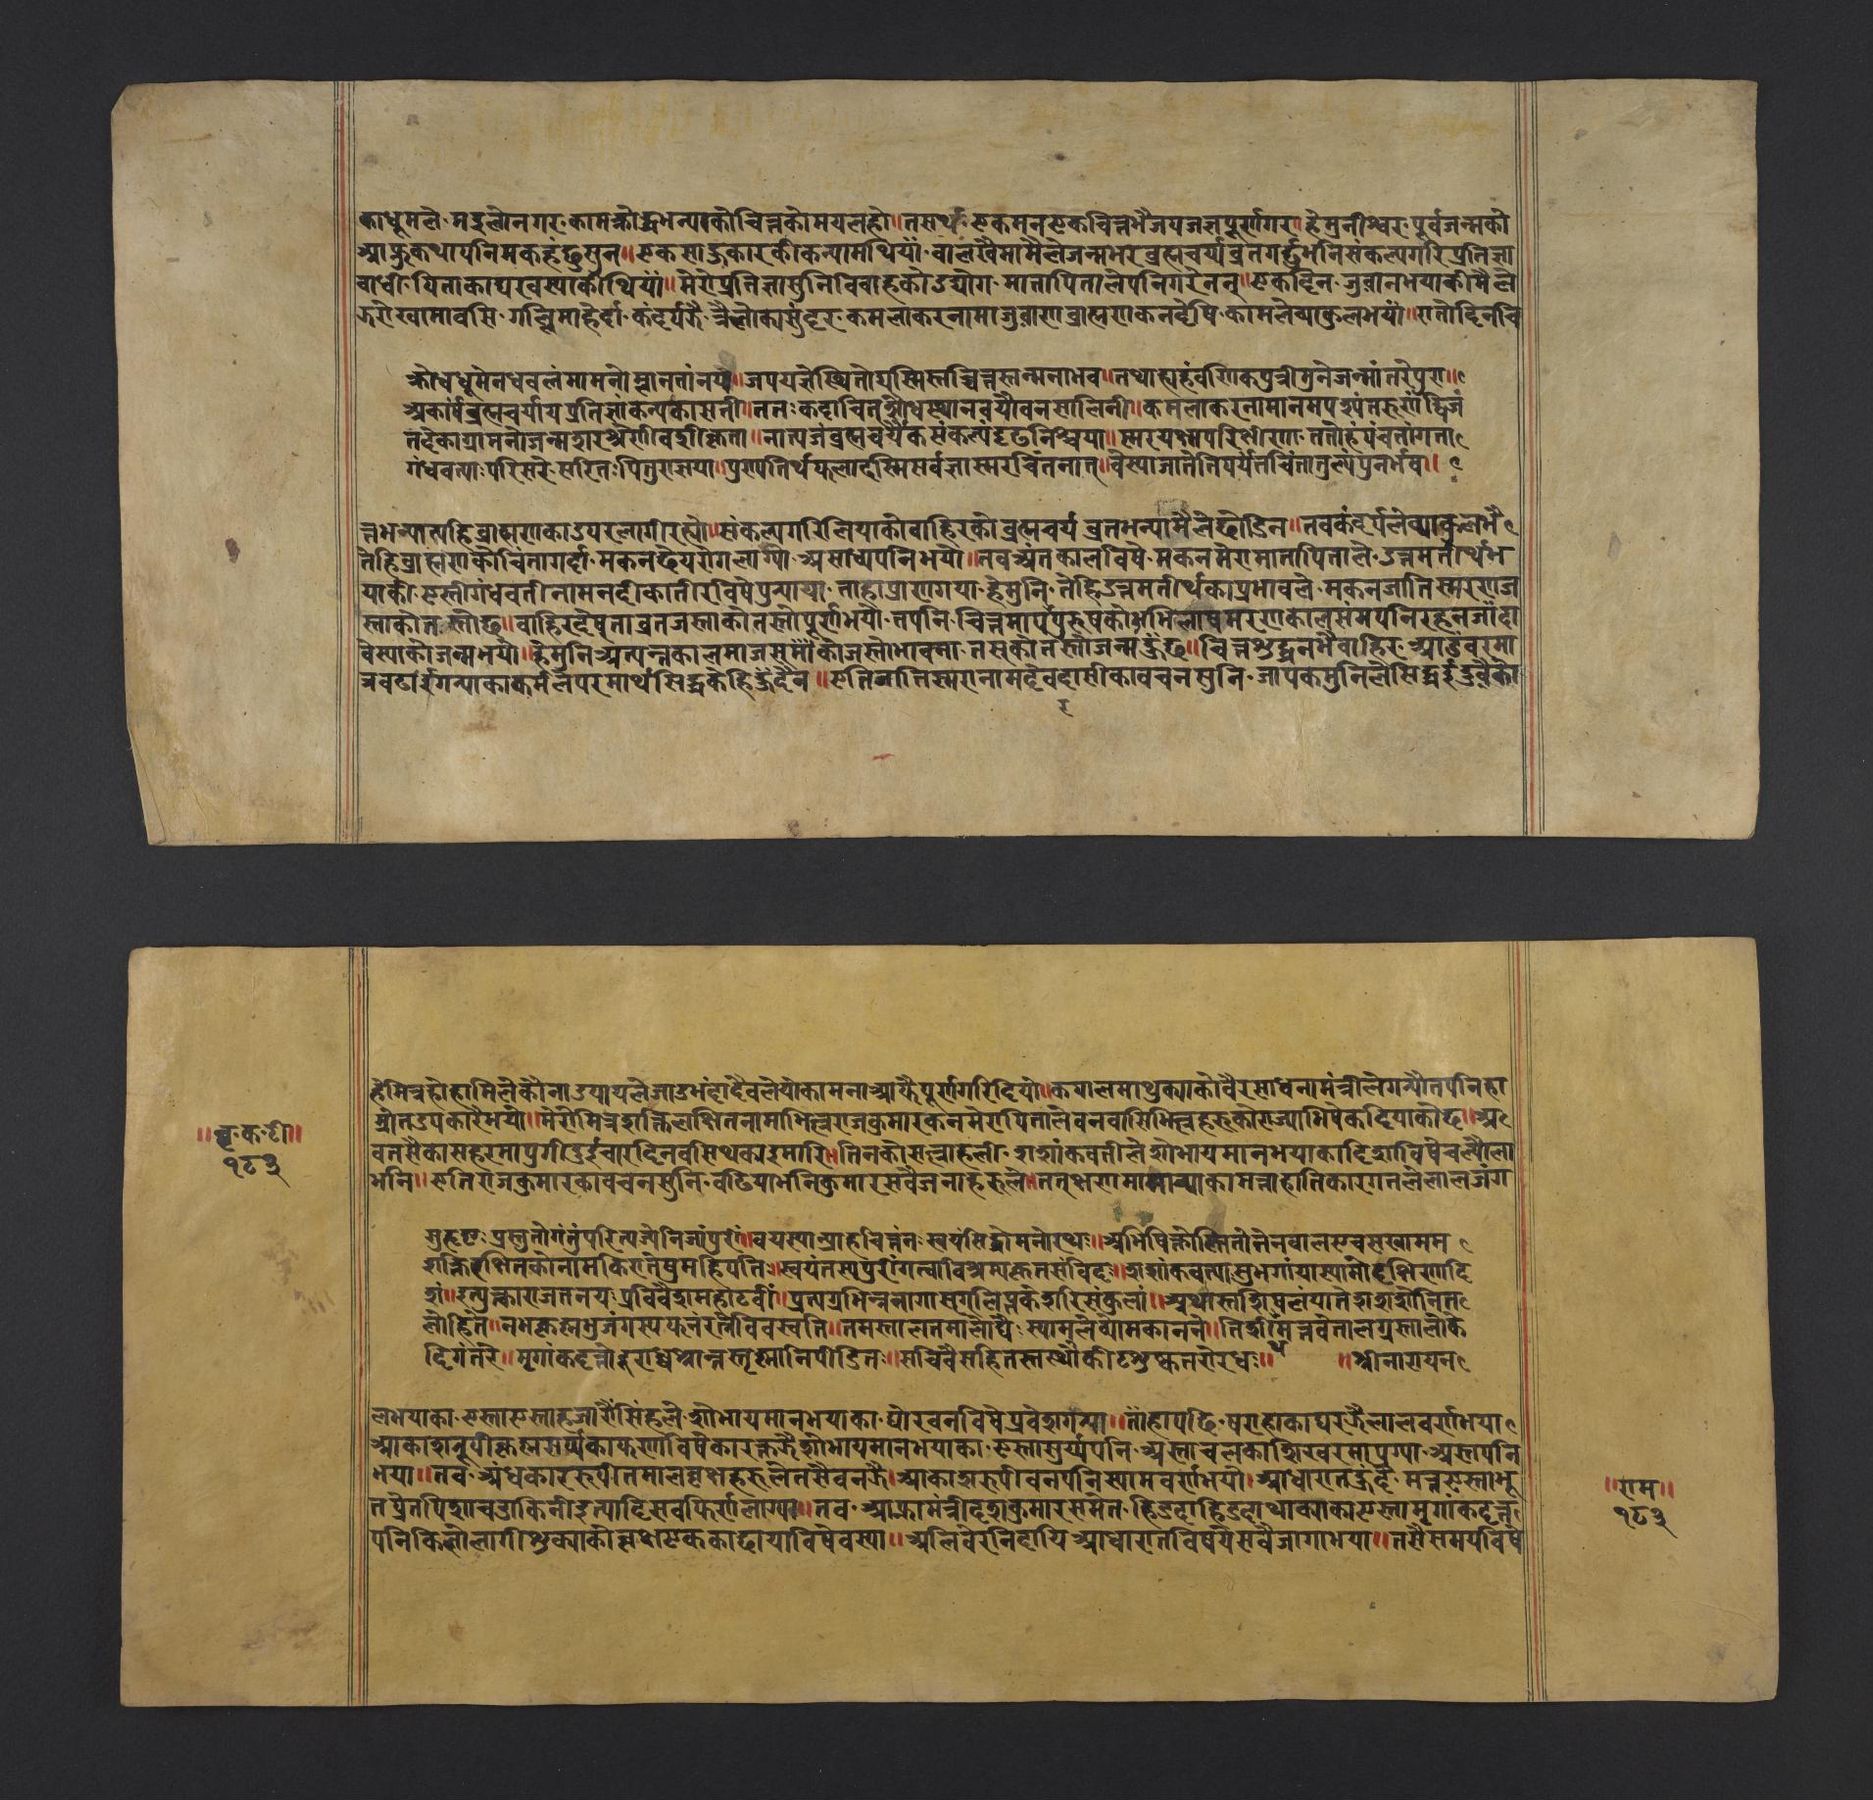 का धूमले मइलो नगर कामक्रोद्धभन्याको चित्तको मयल हो॥ तसर्थ एकमन एकचित्त भै जपजज्ञ पूर्ण गर॥ हे मुनीश्वर पूर्वजन्मको
आफ्नु कथा पनि म कहंछु सुन॥ एक साहुकारकी कन्या म थियां वालखैमा मैले जन्मभर ब्रह्मचर्य्य व्रत गर्छु भनि संकल्प गरि प्रतिज्ञा
वाधी पिताका घर वस्याकी थियां॥ मेरो प्रतिज्ञा सुनि विवाहको उद्योग माता पिताले पनि गरेनन्॥ एकदिन जुवान भयाकी मैले
झरोखामा वसि गल्लिमा हेर्दा कंदर्प झै त्रैलोक्यसुंदर कमलाकर नामा जुवाण ब्राह्मणकन देषि कामले व्याकुल भयां॥ रातोदिन चि
क्रोधधूमेन धवलं मा मनो म्लानतां नय॥ जपयज्ञे स्थितो यस्मिस्तच्चित्तस्तन्मना भव॥ तथाह्यहं वणिकपुत्री मुने जन्मांतरे पुरा॥
अकार्षं ब्रह्मचर्याय प्रतिज्ञां कन्यका सती॥ ततः कदाचित् सौधस्था नवयौवनसालिनी॥ कमलाकरनामानमपश्यं तरुणं द्विजं
तदेकाग्रामनो जन्मशरश्रेणीवशीकृता॥ नात्यजं ब्रह्मचर्यैकसंकल्पं दृढनिश्चया॥ स्मरयक्ष्मापरिक्षीणा ततोहं पंचतां गता
गंधवत्या परिसरे सरितः पितुराज्ञया॥ पुण्यतिर्थफलादस्मि सर्वज्ञा स्मरचिंतनात्॥ वेस्या जातेति पर्यंतचिंतातुल्य पुनर्भव॥
त्त भन्या त्यहि ब्राह्मणका उपर लागीरह्यो॥ संकल्प गरि लियाको वाहिरको ब्रह्मचर्य व्रत भन्या मैले छोडिन॥ तव कंदर्पले व्याकुल भै
तेहि ब्राह्मणको चिंता गर्दा मकन क्षयरोग लाग्यो असाध्य पनि भयो॥ तव अंतकालविषे मकन मेरा माता पिताले उत्तम तीर्थ भ
याकी एस्ती गंधवती नाम नदीका तीरविषे पुर्‍याया ताहा प्राण गया हे मुनि तेहि उत्तम तीर्थका प्रभावले मकन जातिस्मरण ज
स्ताको तस्तो छ॥ वाहिर देषता व्रत जस्ताको तस्तो पूर्ण भयो तपनि चित्तमा पुरुषको अभिलाष मरणकालसंम पनि रहन जांदा
वेस्याको जन्म भयो॥ हे मुनि अत्यन्नकालमा जसमांको जस्तो भावना तसको तस्तो जन्म हुंछ॥ चित्त शुद्ध नभै वाहिर आडंवरमा
त्र वढाई गर्‍याका कर्मले परमार्थ सिद्ध केहि हुंदैन॥ एति जातिस्मरा नाम देवदासीका वचन सुनि जापक मुनिले सिद्ध हुंदुवैको
र
हे मित्र हो हामिले कौना उपायले जाउ भंदा दैवले यो कामना आफै पूर्ण गरिदियो॥ कपालमा थुक्याको वैरसाधना मंत्रीले गर्‍यो तपनि हा
म्रो त उपकारै भयो॥ मेरो मित्र शक्तिलक्षित नामा भिल्लराजकुमारकन मेरा पिताले वनवासि भिल्लहरुको राज्याभिषेक दियाको छ॥ अ
व तसैका सहरमा पुगी दुई चार दिन वसि थकाइ मारि तिनको सल्लाह ली शशांकवतीले शोभायमान भयाका दिशाविषे चल्यौला
भनि॥ एति राजकुमारका वचन सुनि वढिया भनि कुमार सवै जनाहरुले तत्क्षणमा मात्याका मत्ताहातिका रगतले लाल जंग
सुहृष्ट प्रस्तुतो गंतुं परित्यज्य निजां पुरीं॥ वयस्या प्राह चित्तं न स्वयं सिद्धो मनोरथः॥ अभिषिक्तो क्षितो तेन वालस्य च सखा मम
शक्तिरक्षितको नाम किरातेषु महिपति॥ स्वयं तस्य पुरीं गत्वा विश्रम्य कृतसंविदः॥ शशांकवत्या सुभगां यास्यामो दक्षिणां दि
शं॥ इत्युक्त्वा राजतनय प्रविवेश महाटवीं॥ प्रत्यग्रभिन्ननागासगलिप्तकेशरिसंकुलां॥ अथास्तशिषलं याते शशशोनित
लोहिते॥ नभकृत्स्नभुजंगस्य फनरत्ने विवस्वति॥ तमस्तालतमालौघै स्यामले व्योमकानने॥ तिशीमत्तवेतालग्रस्तालोके
दिगंतरे॥ मृगांकदत्तो दूराध्वश्रान्नस्तृष्णानिपीडित॥ सचिवैसहितस्तस्थौ कीटशुष्कतरोरधः॥ श्रीनारायन
ल भयाका एस्ता एस्ता हजारौ सिंहले शोभायमान भयाका घोर वनविषे प्रवेश गर्‍या॥ तांहा पछि षराहाका घर झै लाल वर्ण भया
आकाशरूपी कृष्णसर्प्पका फणाविषेका रत्न झै शोभायमान भयाका एस्ता सुर्य्य पनि अस्ताचलका शिखरमा पुग्या अस्त पनि
भया॥ तव अंधकाररूपी तमालवृक्षहरुले तसै वन झै आकाशरूपी वन पनि स्यामवर्ण भयो आधारात हुंदै मत्त एस्ता भू
त प्रेत पिशाच डाकिनी इत्यादि सव फिर्ण लाग्या॥ तव आफ्ना मंत्री दश कुमार समेत हिडदा हिडदा थाक्याका एस्ता मृगांकदत्त
पनि किरो लागी शुक्याको वृक्ष एकका छायाविषे वस्या॥ अलि वेर निदायि आधारातविषयै सवै जागा भया॥ तसै समयविषे
॥ वृ क टी॥
१८३
॥ राम॥
१८३